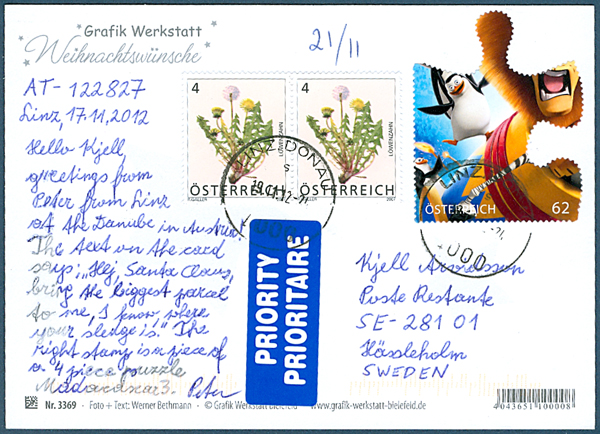 Grafik Werkstatt
Weihnachtswünsche
21/11
AT-122827
Linz, 17.11.2012
Hello Kjell,
greetings from
Peter from Linz
at the Danube in Austria.
The text on the card
says "Hej, Santa Claus,
bring the biggest parcel
to me, I know where
your sledge is." The
right stamp is a piece of
a 4 piece puzzle
Madagascar 3. Peter
4
LÖWENZAHN
ÖSTERREICH
P. GÄLLER
4
LÖWENZAHN
ÖSTERREICH
2007
LINZ DONAU
S
19.11.12
4000
ÖSTERREICH 62
LINZ
4000
PRIORITY
PRIORITAIRE
Kjell
Poste Restante
SE-281 01
Hässleholm
SWEDEN
Nr. 3369 · Foto + Text: Werner Bethmann · © Grafik Werkstatt Bielefeld · www.grafik-werkstatt-bielefeld.de
4043651100008